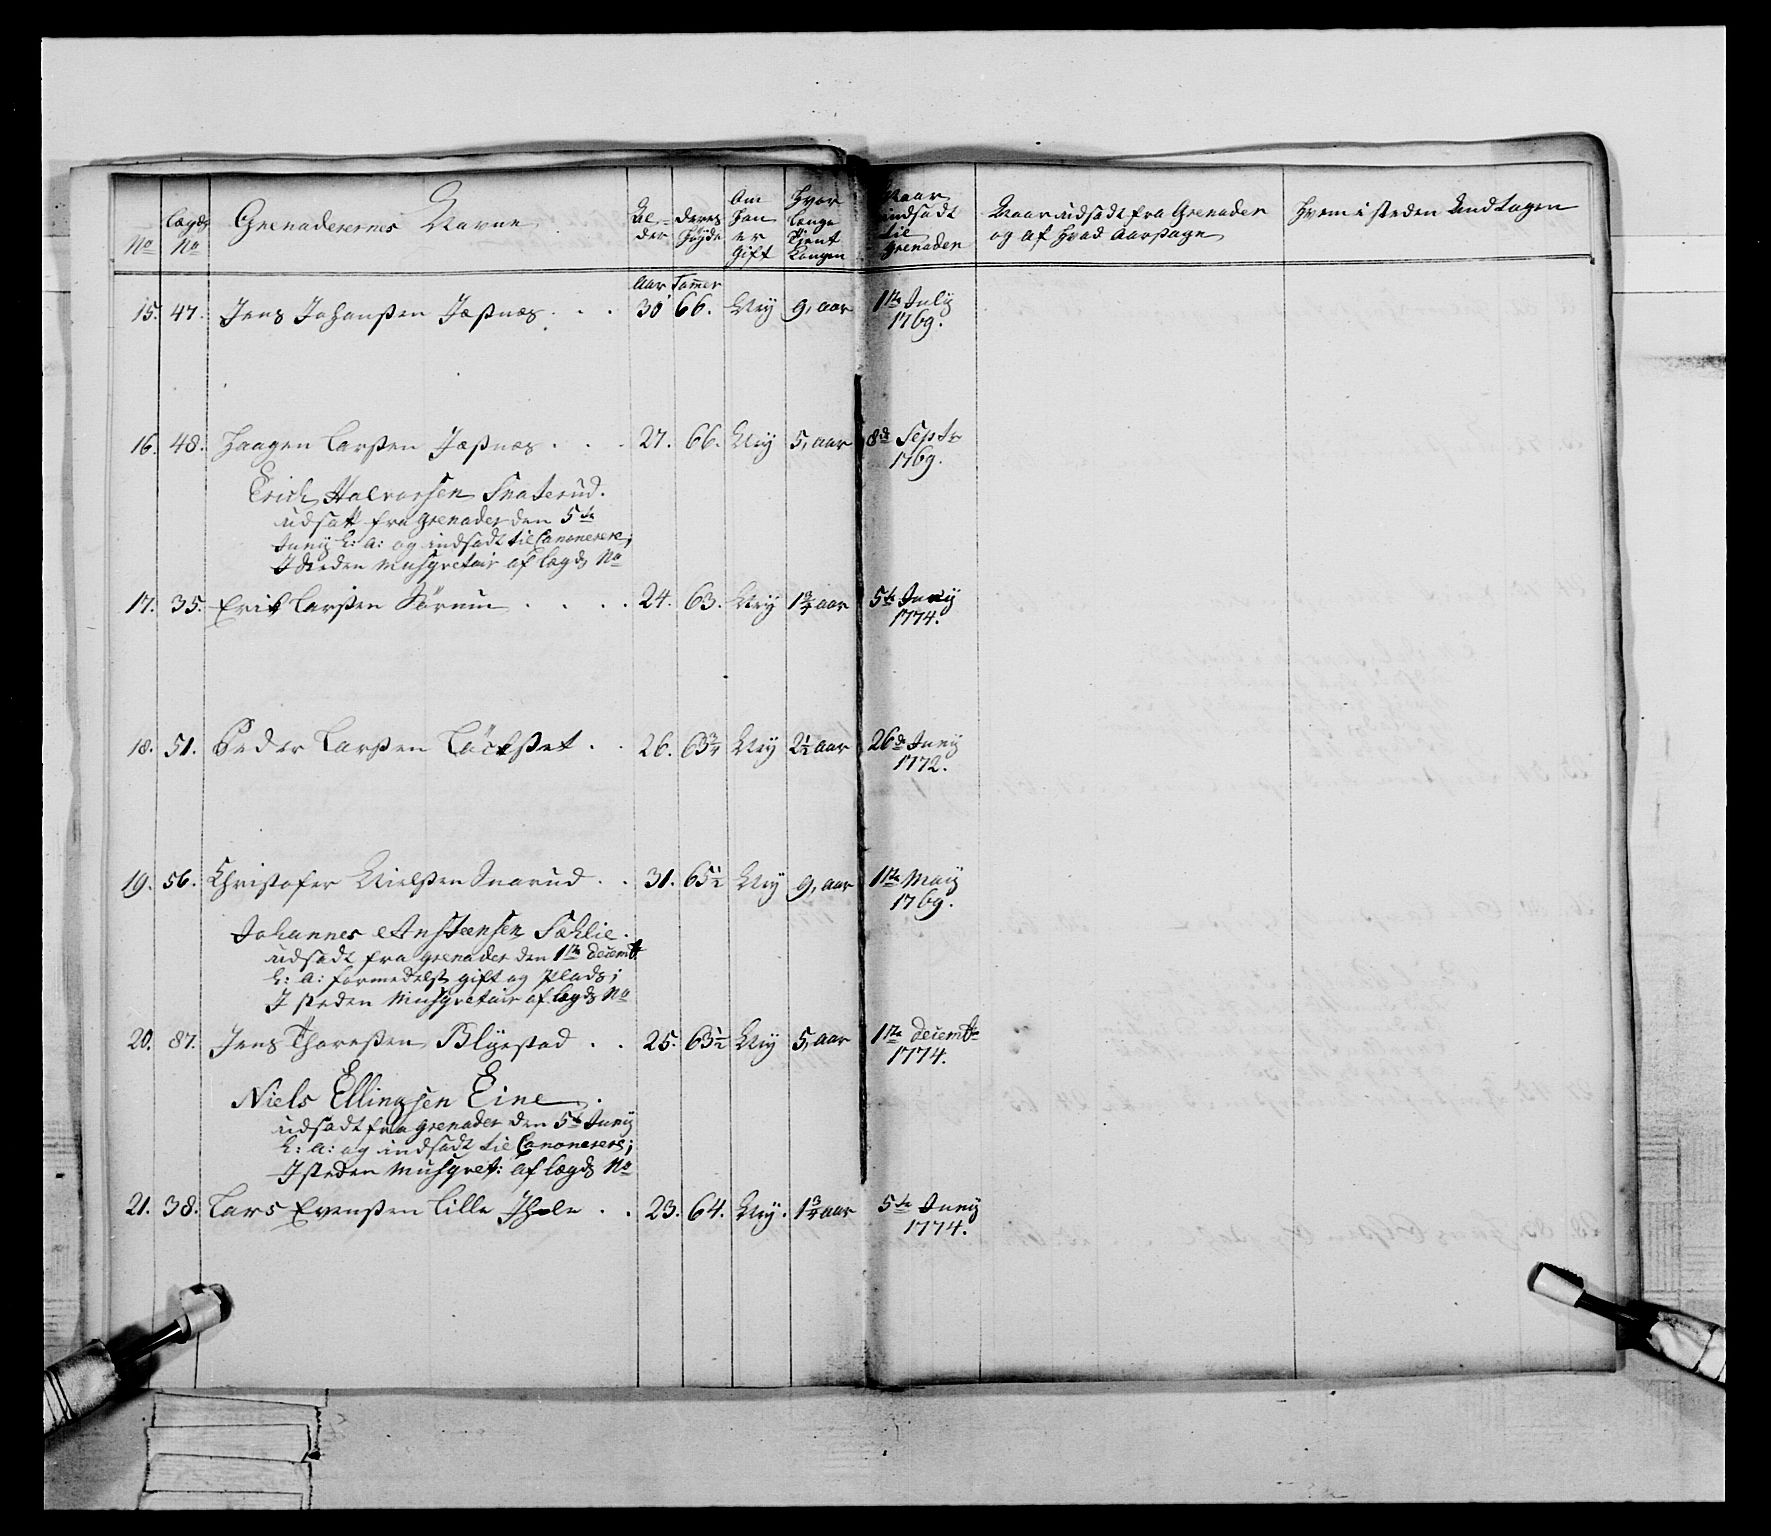 No
Lægds No
Grenaderernes Navne
Al-
der
deres
Høyde
Om
han
er
Gift
Hvor
længe
Tient
Kongen
Naar
indsadt
til
Grenaden
Naar udsadt fra Grenaden
og af hvad Aarsage
Hvem i steden Andtagen
Aar Tomer
15. 47. Jens Johanßen Jæßnæs . . . 30 66. Ney 9, aar 1ste July
1769.
16. 48. Haagen Larßen Jæßnæs . . . 27. 66. Ney 5, aar 8de Septr
1769.
Erich Halvorsen Snaterud.
udsatt fra grenader den 5te
Juny h: a: og indsadt til Canonerere;
I steden Musqvetair af Lægds No
17. 35. Erik Larßen Sørum . . . . 24. 63. Ney 1¾ aar 5te Juny
1774.
18. 51. Peder Larßen Löckset . . 26. 63¾ Ney 2½ aar 26de Juny
1772.
19. 56. Christofer Nielßen Snarud . . 31. 65½ Ney 9, aar 1ste May
1769.
Johannes Ansteensen Sæhlie.
udsadt fra grenader den 1ste decembr
h: a: formedelst gift og Plads;
I steden Musqvetair af Lægds No
20. 87. Jens Thoreßen Blyestad . . 25. 63½ Ney 5, aar 1ste decembr
1774.
Niels Ellingsen Eine.
udsadt fra grenader den 5te Juny
h: a: og indsadt til Canonerere;
I steden Musqvet: af Lægds No
21. 38. Lars Evenßen Lille Ihle . . 23. 64. Ney. 1¾ aar 5te Juny
1774.